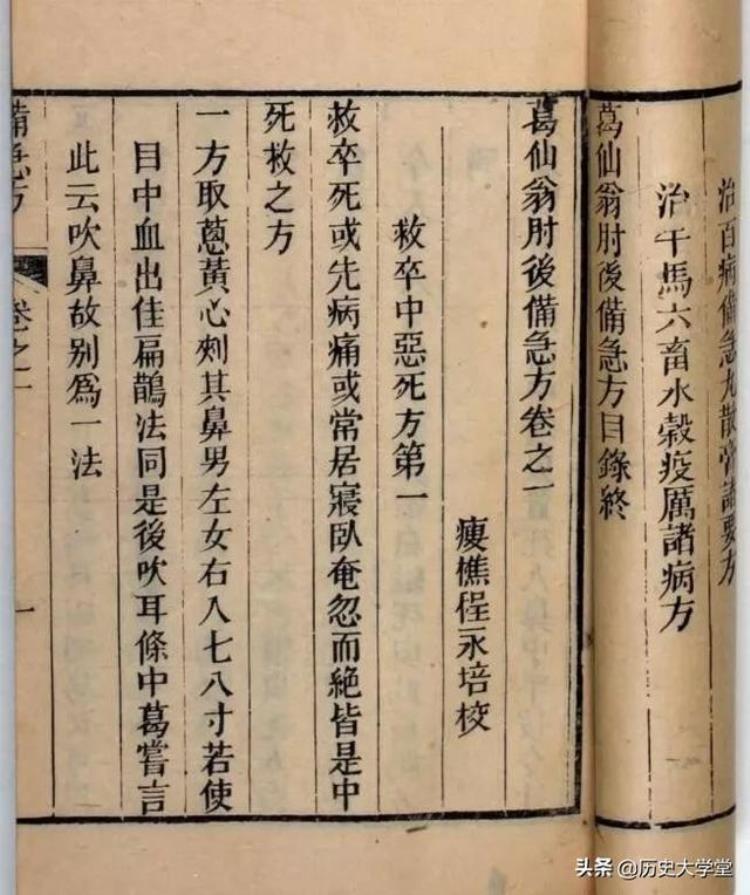 治百病備急丸散膏諸要方
治牛馬六畜水穀疫厲諸病方
葛仙翁肘後備急方目錄終
葛仙翁肘後備急方卷之一
瘦樵程永培校
救卒中惡死方第一
救卒死或先病痛或常居寢臥奄忽而絕皆是中
死救之方
一方取蔥黃心刺其鼻男左女右入七八寸若使
目中血出佳扁鵲法同是後吹耳條中葛嘗言
此云吹鼻故別爲一法
備急方 卷之一 一
头条 @历史大学堂